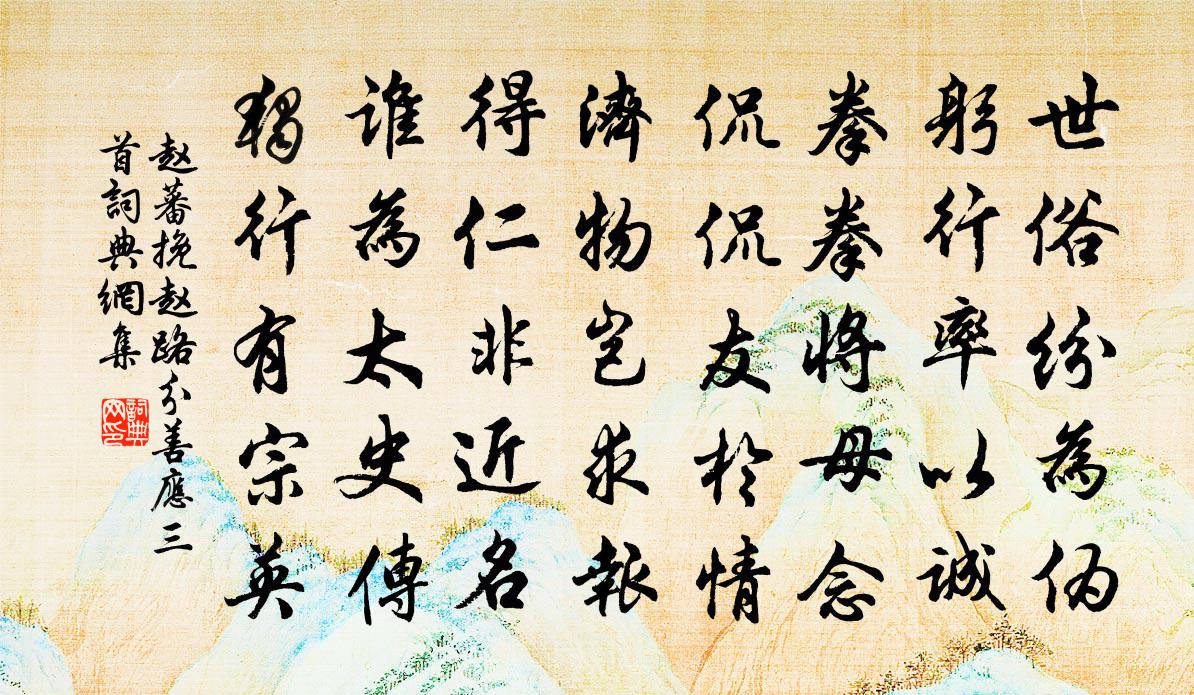 世俗纷為伪
躬行率以誠
拳拳将母念
侃侃友於情
濟物岂求報
得仁非近名
谁為太史傳
獨行有宗英
赵蕃挽赵路分善應三
首詞典網集
詞典
网印